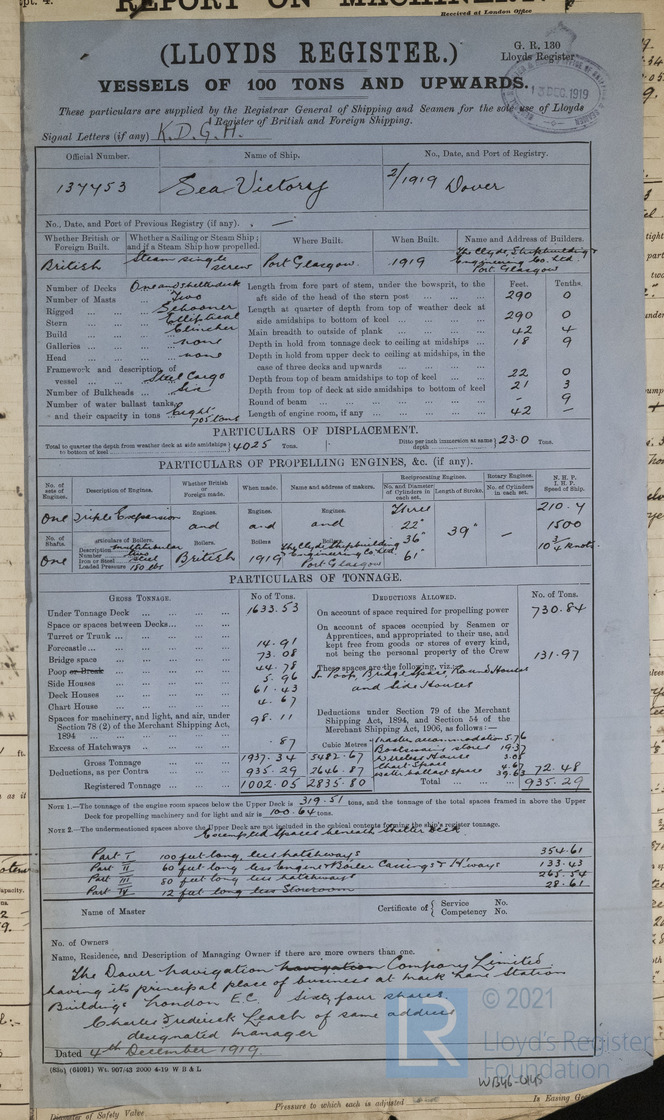 REPORT ON MACHINERY
Received at London Office
(LLOYDS REGISTER.)
G. R. 130
Lloyds Register
VESSELS OF 100 TONS AND UPWARDS.
DEC. 1919
These particulars are supplied by the Registrar General of Shipping and Seamen for the sole use of Lloyds
Register of British and Foreign Shipping.
Signal Letters (if any) K.D.G.H.
Official Number. Name of Ship. No., Date, and Port of Registry.
137453 Sea Victory 2/1919 Dover
No., Date, and Port of Previous Registry (if any). —
Whether British or Foreign Built. Whether a Sailing or Steam Ship; and if a Steam Ship how propelled. Where Built. When Built. Name and Address of Builders.
British Steam single screw Port Glasgow 1919 The Clyde Shipbuilding & Engineering Co. Ltd. Port Glasgow
Number of Decks One and shelterdeck
Number of Masts Two
Rigged Schooner
Stern Elliptical
Build Clincher
Galleries none
Head none
Framework and description of vessel Steel Cargo
Number of Bulkheads Six
Number of water ballast tanks, and their capacity in tons eight 705 tons
Feet. Tenths.
Length from fore part of stem, under the bowsprit, to the aft side of the head of the stern post 290 0
Length at quarter of depth from top of weather deck at side amidships to bottom of keel 290 0
Main breadth to outside of plank 42 4
Depth in hold from tonnage deck to ceiling at midships 18 9
Depth in hold from upper deck to ceiling at midships, in the case of three decks and upwards
Depth from top of beam amidships to top of keel 22 0
Depth from top of deck at side amidships to bottom of keel 21 3
Round of beam - 9
Length of engine room, if any 42 –
PARTICULARS OF DISPLACEMENT.
Total to quarter the depth from weather deck at side amidships to bottom of keel 4025 Tons. Ditto per inch immersion at same depth 23.0 Tons.
PARTICULARS OF PROPELLING ENGINES, &c. (if any).
No. of sets of Engines. Description of Engines. Whether British or Foreign made. When made. Name and address of makers. Reciprocating Engines. Rotary Engines. N.H.P. I.H.P. Speed of Ship.
No. and Diameter of Cylinders in each set. Length of Stroke. No. of Cylinders in each set.
One Triple Expansion Engines. and Engines. and Engines. and Three 22" 36" 61" 39" – 210.4 1500 10 3/4 knots.
No. of Shafts. Particulars of Boilers. Boilers Boilers Boilers
One Description Multitubular Number two Iron or Steel steel Loaded Pressure 180 lbs British 1919 The Clyde Shipbuilding & Engineering Co Ltd Port Glasgow
PARTICULARS OF TONNAGE.
GROSS TONNAGE. No. of Tons. DEDUCTIONS ALLOWED. No. of Tons.
Under Tonnage Deck 1633.53
Space or spaces between Decks
Turret or Trunk
Forecastle 14.91
Bridge space 73.08
Poop or Break 44.78
Side Houses 5.96
Deck Houses 61.43
Chart House 4.67
Spaces for machinery, and light, and air, under Section 78 (2) of the Merchant Shipping Act, 1894 98.11
Excess of Hatchways .87
Cubic Metres
Gross Tonnage 1937.34 5482.67
Deductions, as per Contra 935.29 2646.87
Registered Tonnage 1002.05 2835.80
On account of space required for propelling power 730.84
On account of spaces occupied by Seamen or Apprentices, and appropriated to their use, and kept free from goods or stores of every kind, not being the personal property of the Crew 131.97
These spaces are the following, viz.:—
In Poop, Bridge Space, Round Houses
and Side Houses
Deductions under Section 79 of the Merchant Shipping Act, 1894, and Section 54 of the Merchant Shipping Act, 1906, as follows:—
Master accommodation 5.76
Boatswains stores 19.37
Wireless House 3.05
Chart Space 4.67
Water ballast space 39.63 72.48
Total 935.29
NOTE 1.—The tonnage of the engine room spaces below the Upper Deck is 319.51 tons, and the tonnage of the total spaces framed in above the Upper
Deck for propelling machinery and for light and air is 100.64 tons.
NOTE 2.—The undermentioned spaces above the Upper Deck are not included in the cubical contents forming the ship's register tonnage.
Exempted Spaces beneath Shelter Deck
Part I 100 feet long, less hatchways 354.61
Part II 60 feet long less Engine & Boiler Casings & H'ways 133.43
Part III 80 feet long less hatchways 265.54
Part IV 12 feet long less Storeroom 28.61
Name of Master Certificate of { Service No.
Competency No.
No. of Owners
Name, Residence, and Description of Managing Owner if there are more owners than one.
The Dover Navigation navigation Company Limited
having its principal place of business at Mark Lane Station
Buildings London E.C. Sixty four shares
Charles Frederick Leach of same address
designated manager
Dated 4th December 1919.
(83a) (64091) Wt. 907/43 2000 4-19 W B & L
LR © 2021
Lloyd's Register
Foundation
WB46-0145
Diameter of Safety Valve
Pressure to which each is adjusted
Is Easing